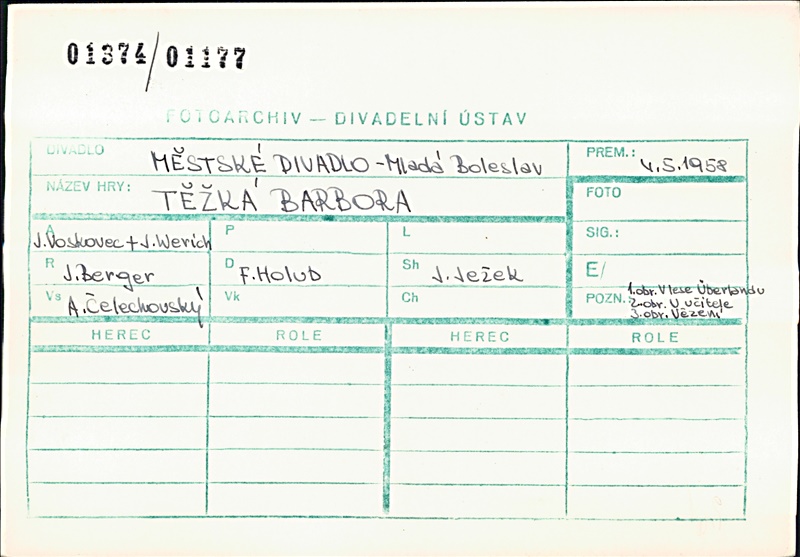 01374/01177
FOTOARCHIV — DIVADELNÍ ÚSTAV
DIVADLO MĚSTSKÉ DIVADLO - Mladá Boleslav PREM.: V.5.1958
NÁZEV HRY: TĚŽKÁ BARBORA FOTO
A J. Voskovec + J. Werich P L SIG.:
R J. Berger D F. Holub Sh J. Ježek E/
Vs A. Čelechovský Vk Ch POZN. 1. obr. V lese Überlandu
2. obr. U učitele
3. obr. Vězení
HEREC ROLE HEREC ROLE